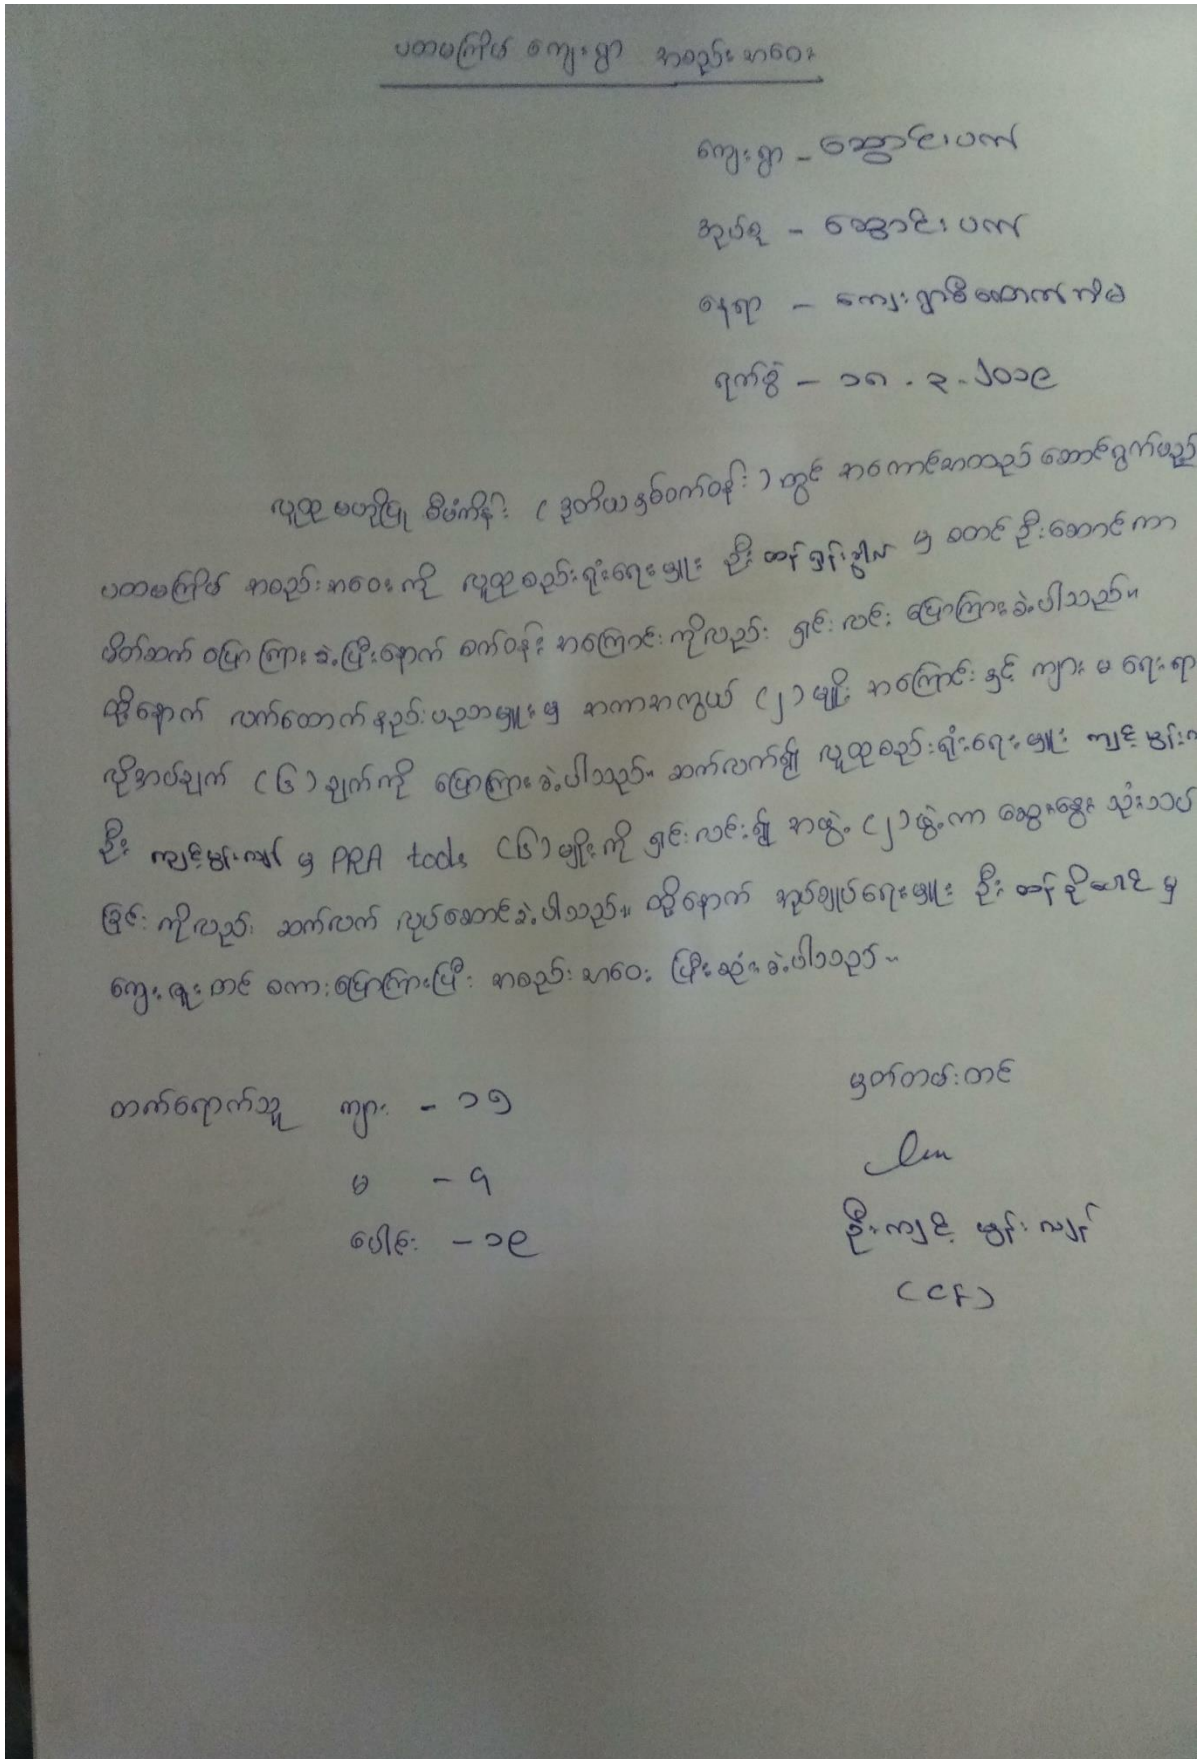 ပတမကြိမ် ကျေးရွာ အစည်းအဝေး
ကျေးရွာ - ဆွောင်းပက်
အုပ်စု - ဆွောင်းပက်
နေရာ - ကျေးရွာစီထောက်အိမ်
ရက်စွဲ - ၁၈ . ၃ . ၂၀၁၉
လူထု ဗဟိုပြု စီမံကိန်း ( ဒုတိယနှစ်ဝက်ဝန်း ) တွင် အကောင်အထည် ဆောင်ရွက်မည့်
ပတမကြိမ် အစည်းအဝေးကို လူထုစည်းရုံးရေးမှူး ဦး မှ စတင်ဦးဆောင်ကာ
မိတ်ဆက် ပြောကြားခဲ့ပြီးနောက် စက်ဝန်း အကြောင်းကိုလည်း ရှင်းလင်း ပြောကြားခဲ့ပါသည်။
ထို့နောက် လက်ထောက်နည်းပညာမှူးမှ အကာအကွယ် (၂) မျိုး အကြောင်းနှင့် ကျား မ ရေးရာ
လိုအပ်ချက် (၆) ချက်ကို ပြောကြားခဲ့ပါသည်။ ဆက်လက်၍ လူထုစည်းရုံးရေးမှူး ကျင့်မွန်း
ဦး ကျင့်မွန်းကျန် မှ PRA tools (၆) မျိုးကို ရှင်းလင်း၍ အဖွဲ့ (၂) ဖွဲ့ကာ ဆွေးနွေး သုံးသပ်
ခြင်းကိုလည်း ဆက်လက် လုပ်ဆောင်ခဲ့ပါသည်။ ထို့နောက် အုပ်ချုပ်ရေးမှူး ဦး မှ
ကျေးဇူးတင် စကားပြောကြားပြီး အစည်းအဝေး ပြီးဆုံးခဲ့ပါသည်။
တက်ရောက်သူ ကျား - ၁၅
မှတ်တမ်းတင်
မ - ၄
ပေါင်း - ၁၉
ဦးကျင့်မွန်းလျန်
(CF)